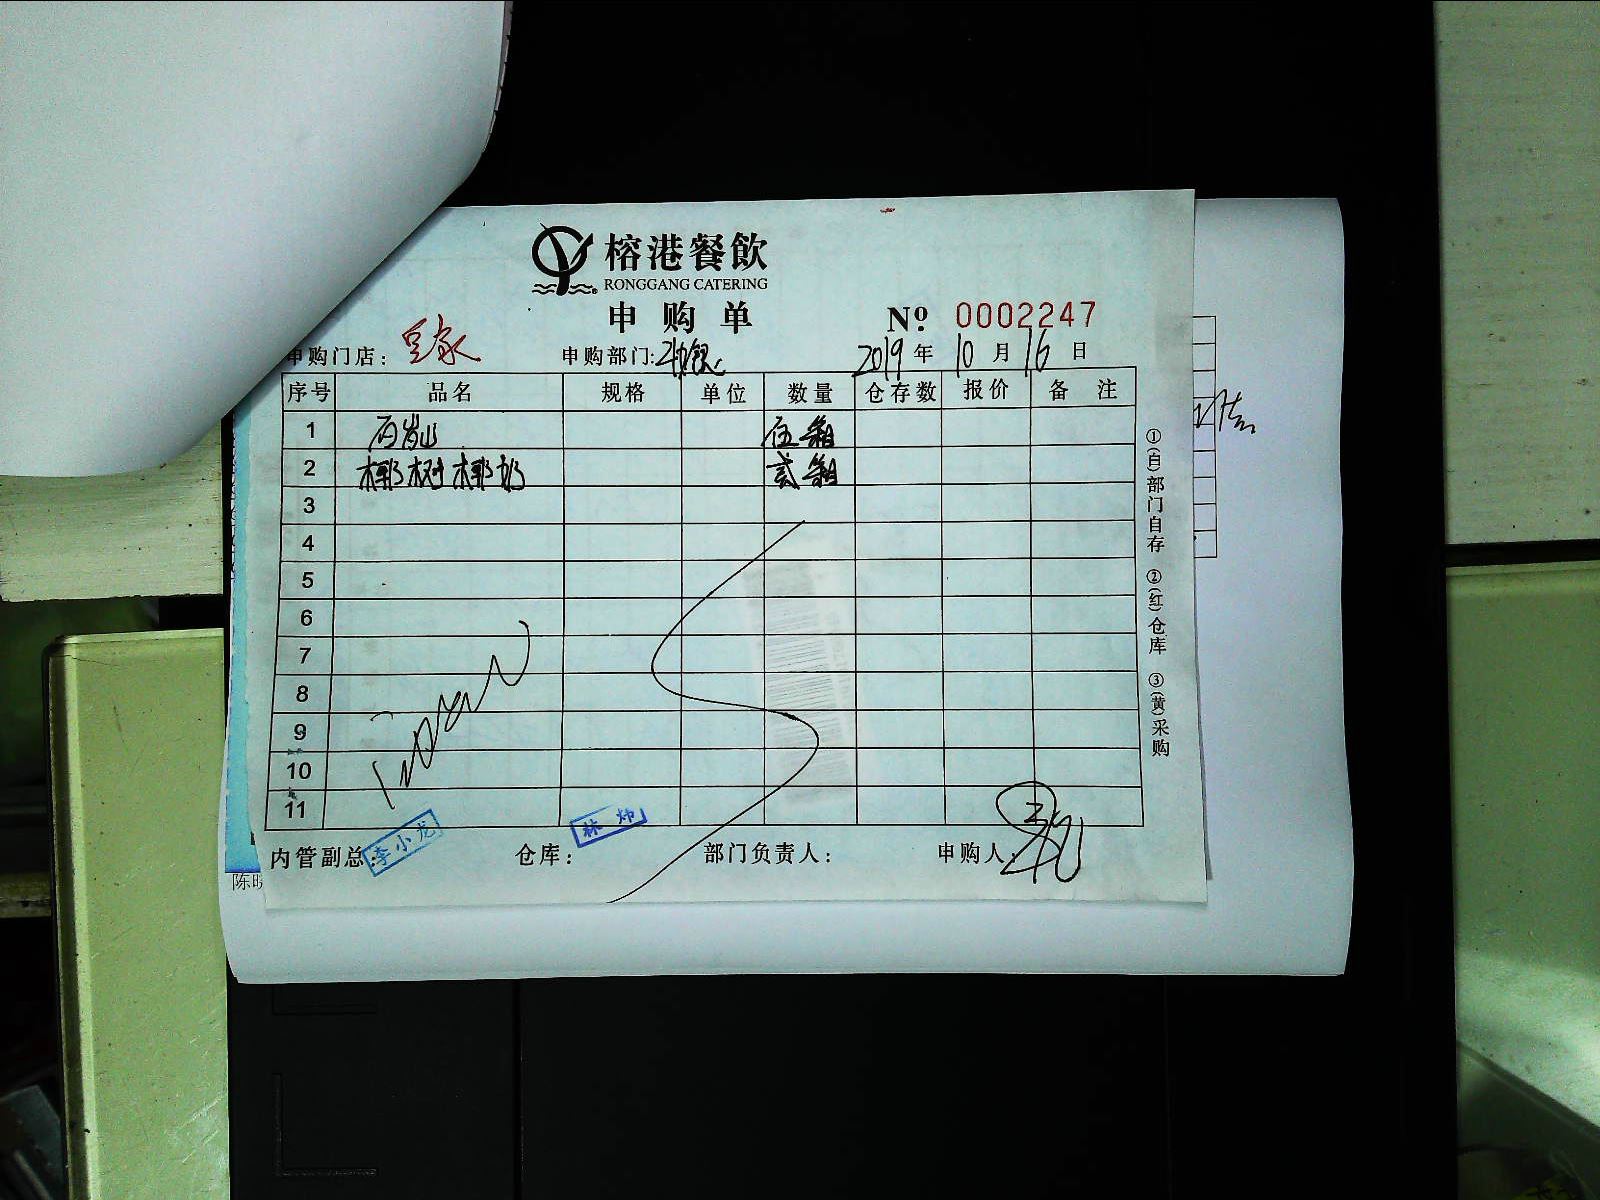 榕港餐飲
RONGGANG CATERING
申购单
Nº 0002247
申购门店：
申购部门: 2019年10月16日
序号 品名 规格 单位 数量 仓存数 报价 备注
1 百岁山 伍箱
2 椰树椰奶 贰箱
3
4
5
6
7
8
9
10
11
内管副总： 李小龙 仓库： 林炜 部门负责人： 申购人：
①(白)部门自存 ②(红)仓库 ③(黄)采购